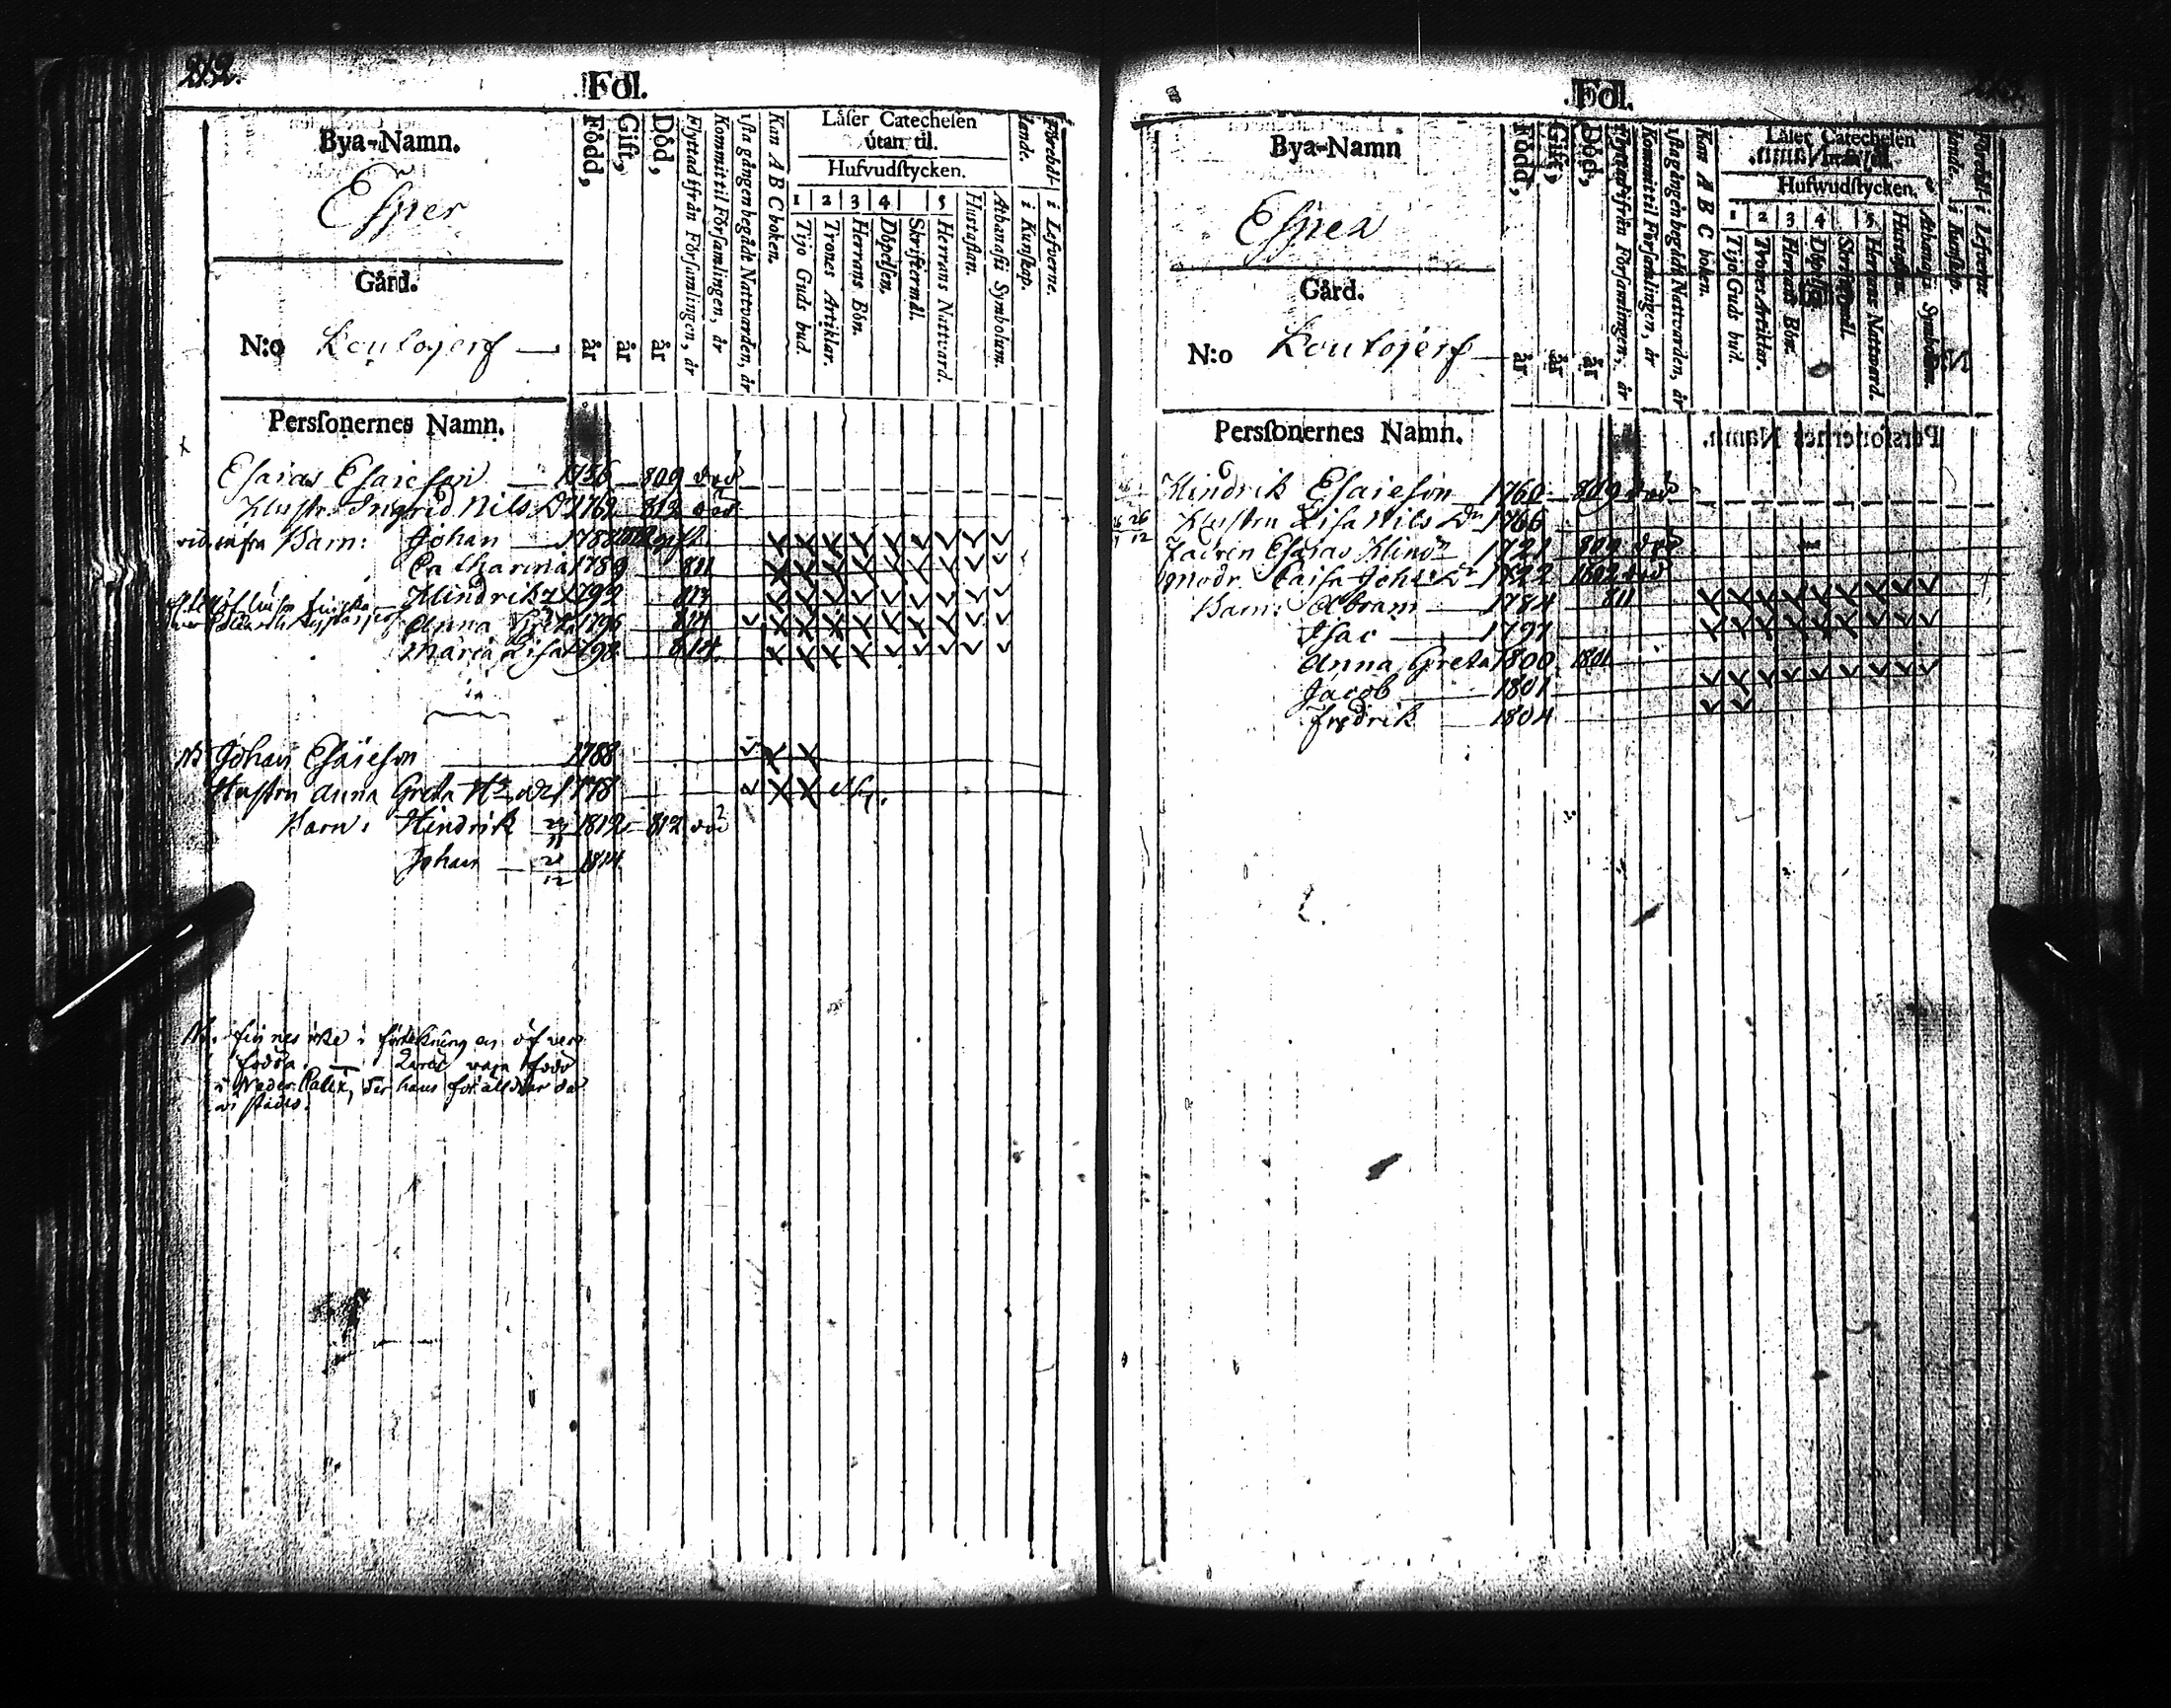 212.
Fol.
Bya-Namn.
Esper
Gård.
N:o Loulojerf
Persſonernes Namn.
Född, år
Gift, år
Död, år
Flyttad ifrån Förſamlingen, år
Kommit til Förſamlingen, år
1ſta gången begådt Nattvarden, år
Kan A B C boken.
Låſer Catecheſen
utan til.
Hufvudſtycken.
1 2 3 4 5
Tijo Guds bud.
Trones Artiklar.
Herrans Bön.
Döpelſen.
Skriftermål.
Herrans Nattvard.
Huſtaflan.
Athanaſii Symbolum.
i Kunſkap.
i Lefverne.
Esaias Esaieson 1756 809 död
Hustr. Ingrid Nils Dr 1762 813 död
vid. infra Barn: Johan 1788 gift
Catharina 1789 811
Hindrik 1792 813
Anna Greta 1796 814
Maria Lisa 1798 814
NB Johan Esaieson 1788
Hustru Anna Greta Hs. Dr 1778
Barn: Hindrik 1812 812 död
Johan 1814
12
NB. finnes icke i förtekning en öfver
födda. — Lärer vara född
i Neder Kalix, der hans föräldrar då
Fol.
Bya-Namn
Esper
Gård.
N:o Loulojerf
Persſonernes Namn.
Född, år
Gift, år
Död, år
Flyttad ifrån Förſamlingen, år
Kommit til Förſamlingen, år
1ſta gången begådt Nattvarden, år
Kan A B C boken.
Låſer Catecheſen
utan til.
Hufwudſtycken.
1 2 3 4 5
Tijo Guds bud.
Trones Artiklar.
Herrans Bön.
Herrans Nattvard.
i Kunſkap.
i Lefverne
Hindrik Esaieson 1760 809 död
26 Hustru Lisa Nils Dr 1766
12
Fadren Esaias Hind:n 1721 809 död
modr. Caisa Johs Dr 1722 1802 död
Barn: Abram 1784 811
Isac 1797
Anna Greta 1800 1801
Jacob 1801
Fredrik 1804